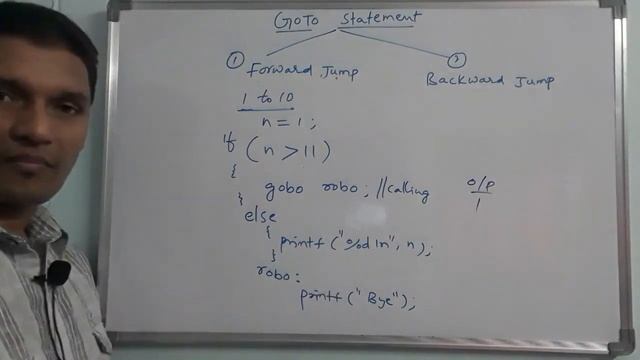 GOTO Statement
① Forward Jump
② Backward Jump
1 to 10
n = 1 ;
if ( n > 11 )
{
gobo robo ; //calling
o/p
1
}
else
{ printf ("%d\n", n);
}
robo :
printf (" Bye");